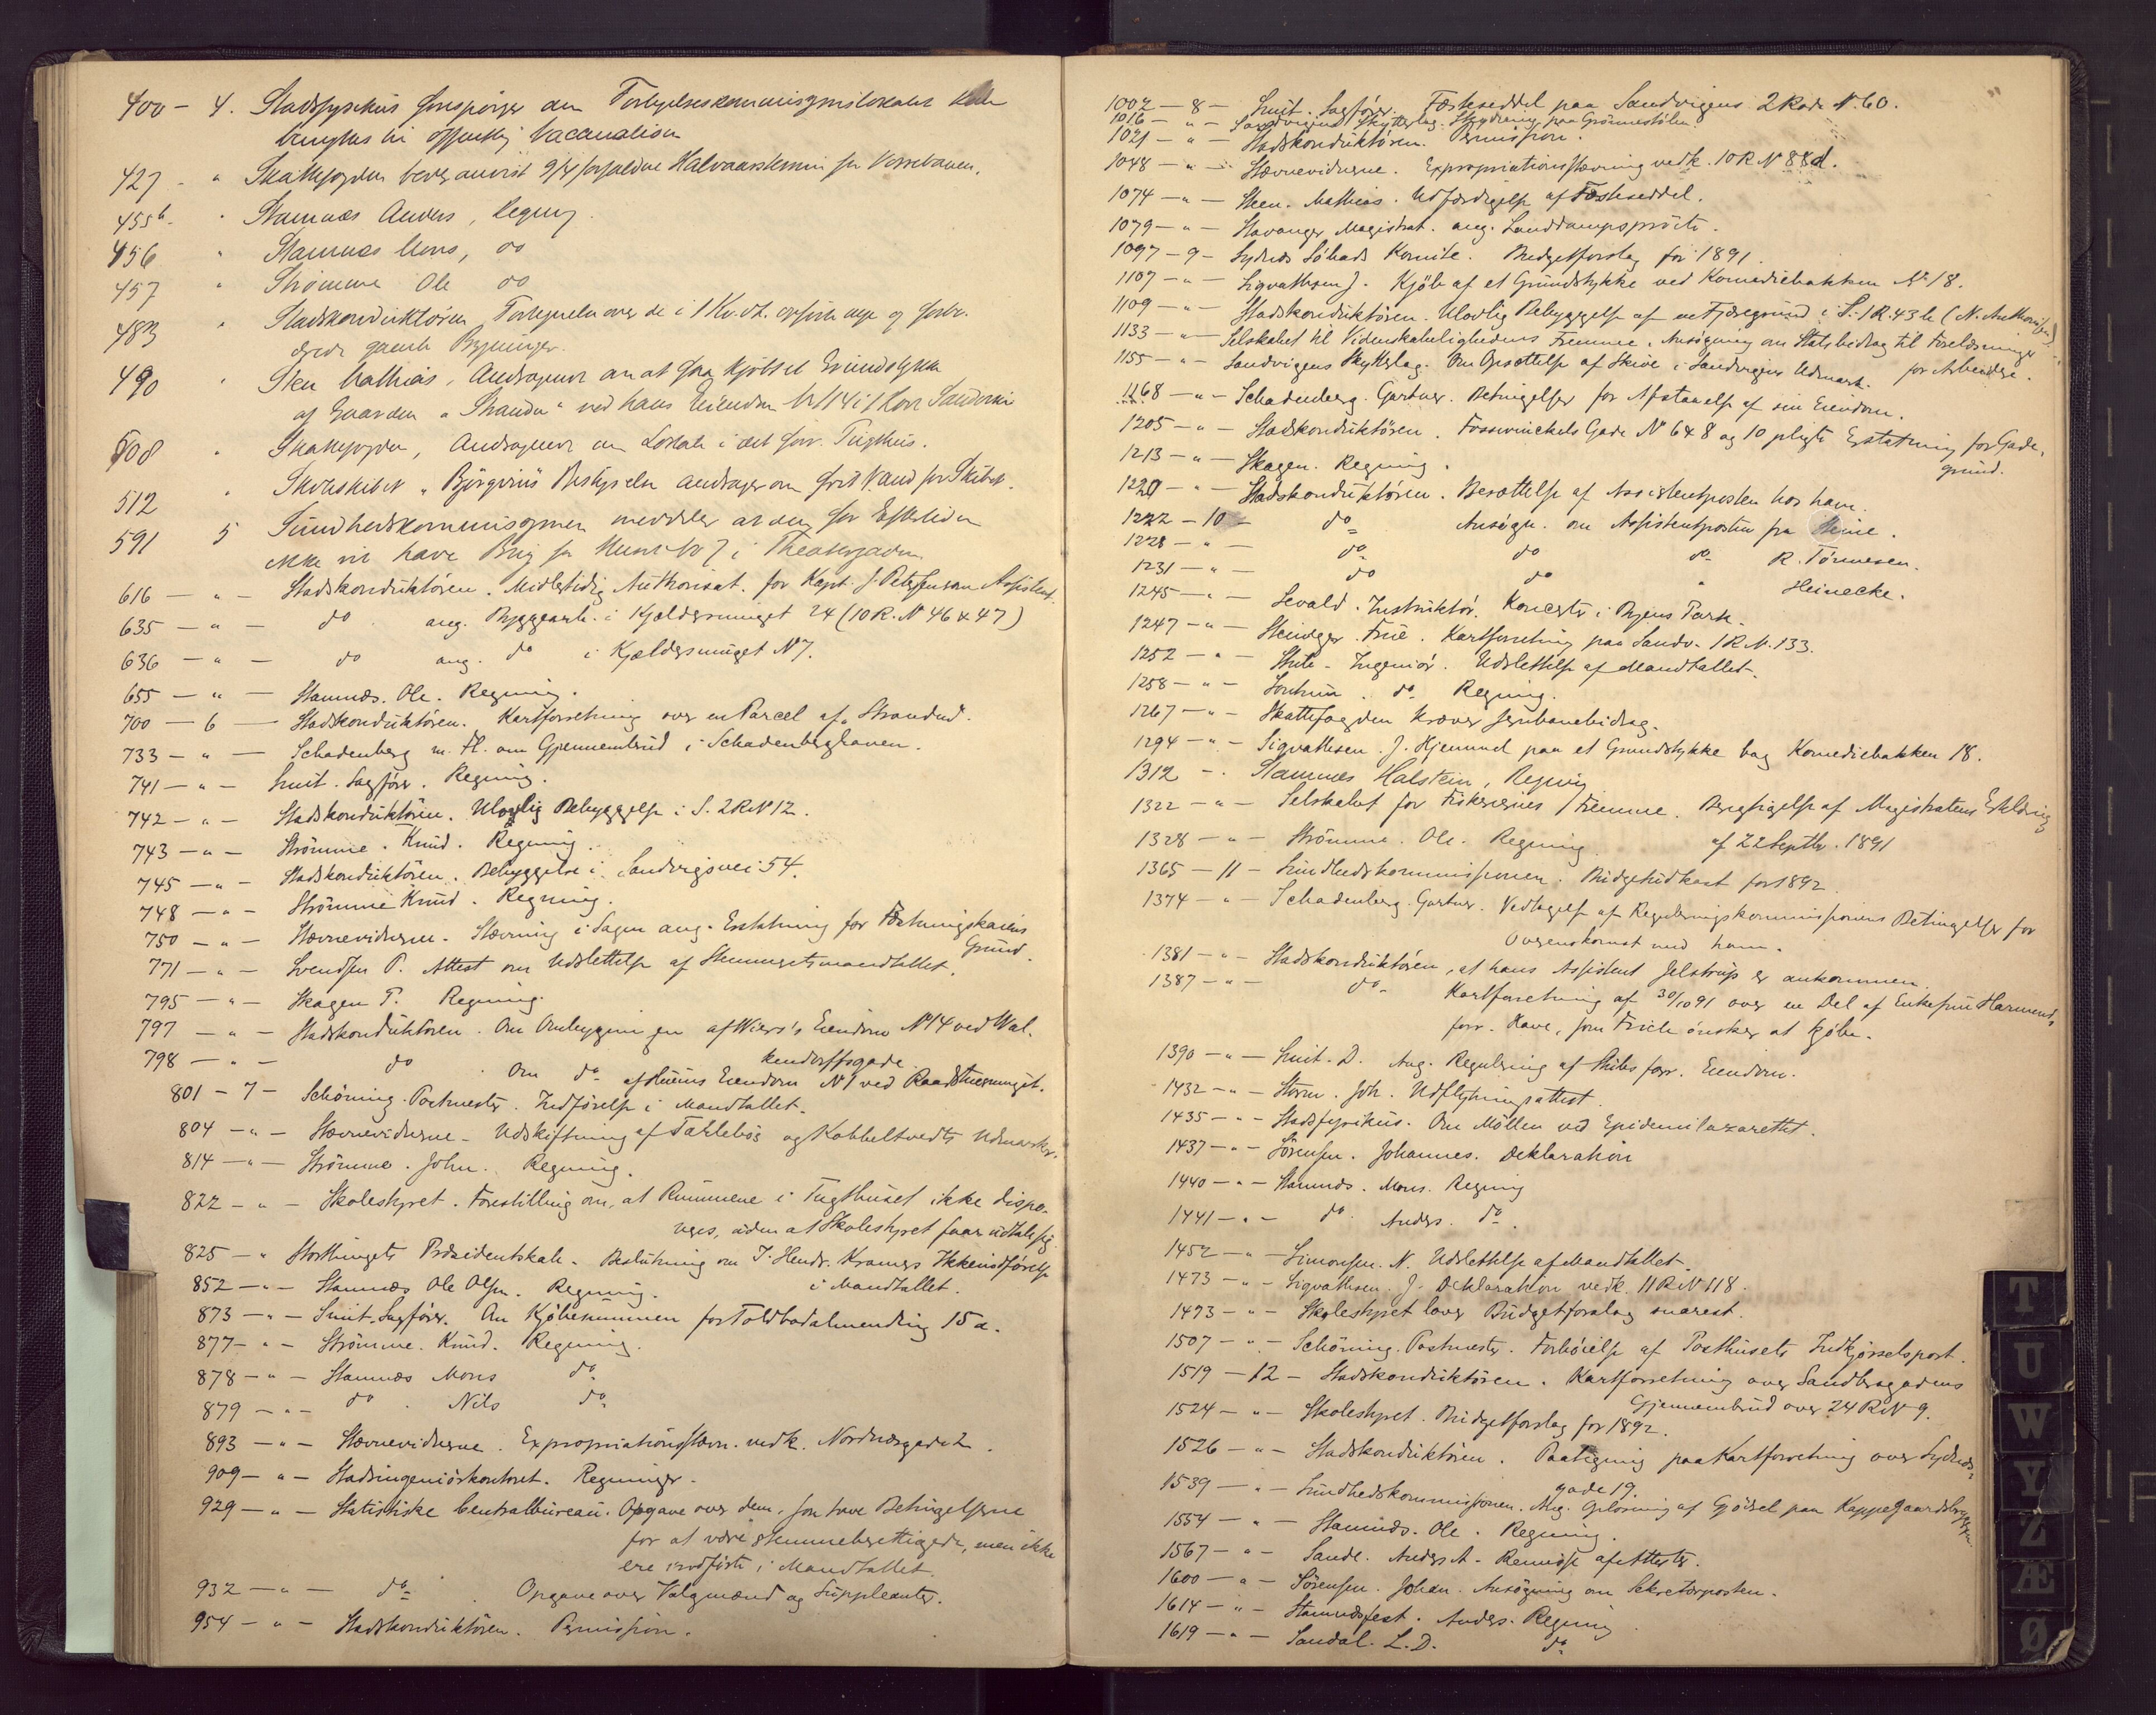 400 - 4. Stadsfysikus forespörger om Forligelseskommissionslokalet kan
benyttes til offentlig Vaccination
427 - " Skattefogden begjærer anvist 9/4 forfaldne Halvaarstermin for Vossebanen.
455b - " Stamnæs Anders, Regning
456 " Stamnæs Mons, do
457 " Strömme Ole do
483 " Stadskonduktören, Fortegnelse over de i 1 Kv. dt. opförte nye og forbe-
drede gamle Bygninger.
490 " Sten Mathias, Andragende om at faa kjöbt et Grundstykke
af Gaarden "Stranden" ved hans Eiendom
508 " Skattefogden, Andragende om Lokale i det forr. Tugthus.
512 " Skoleskibet "Björgvins" Bestyrelse andrager om frit Vand for Skibet.
591 5 Sundhedskommissionen meddeler at den for Eftertiden
ikke vil have Brug for Huset No 7 i Theatergaden
616 - " - Stadskonduktören. Midlertidig Authorisat. for Kapt. J. Petersen som Assistent.
635 - " - do ang. Byggearb. i Kjeldersmuget 24 (10 R. No 46 & 47)
636 - " - do ang. do i Kjeldersmuget No 7.
655 - " - Stamnæs. Ole. Regning.
700 - 6 - Stadskonduktören. Kartforretning over en Parcel af "Stranden".
733 - " - Schadenberg m. fl. om Gjennembrud i Schadenberghaven.
741 - " - Smit. Sagförer. Regning.
742 - " - Stadskonduktören. Ulovlig Bebyggelse i S. 2 R No 12.
743 - " - Strömme. Knud. Regning.
745 - " - Stadskonduktören. Bebyggelse i Sandvigsvei 54.
748 - " - Strömme Knud. Regning.
750 - " - Stævnevidnerne. Stævning i Sagen ang. Erstatning for Fæstningskaiens
Grund.
771 - " - Svendsen P. Attest om Udslettelse af Stemmeretsmandtallet.
795 - " - Skagen P. Regning.
797 - " - Stadskonduktören. Om Ombygningen af Wiers's Eiendom No 14 ved Wal-
kendorffsgade
798 - " - do. Om do af Eiendom No 1 ved Raadstuesmuget.
801 - 7 - Schöning. Postmester. Indförelse i Mandtallet.
804 - " - Stævnevidnerne. Udskiftning af Tarlebö og Kobbeltvedts Udmarker.
814 - " - Strömme. John. Regning.
822 - " - Skolestyret. Forestilling om, at Rummene i Tugthuset ikke dispo-
neres, uden at Skolestyret faar udtale sig.
825 - " Storthingets Præsidentskab. Beslutning om J. Hendr. Kramers Ikkeindförelse
i Mandtallet.
852 - " - Stamnæs Ole Olsen. Regning.
873 - " - Smit. Sagförer. Om Kjöbesummen for Toldbodalmending 15 a.
877 - " - Strömme. Knud. Regning.
878 - " - Stamnæs Mons do
879 - " - do. Nils do
893 - " - Stævnevidnerne. Expropriationsstævn. vedk. Nordnæsgade 2.
909 - " - Stadsingeniörkontoret. Regninger.
929 - " - Statistiske Centralbureau. Opgave over dem, som have Betingelserne
for at være stemmeberettigede, men ikke
ere indförte i Mandtallet.
932 - " - do. Opgave over Valgmænd og Suppleanter.
954 - " - Stadskonduktören. Permission.
1002 - 8 - Smit. Sagförer. Fæsteseddel paa Sandvigens 2 Rode No. 60.
1016 - " - Sandvigens Skytterlag. Skydning paa Grönnestölen.
1021 - " - Stadskonduktören. Permission.
1048 - " - Stævnevidnerne. Expropriationsstævning vedk. 10 R No 88 d.
1074 - " - Steen. Mathias. Udfærdigelse af Fæsteseddel.
1079 - " - Stavanger Magistrat. ang. Landdampspröite.
1097 - 9 - Sydnæs Söbads Komite. Budgetforslag for 1891.
1107 - " - Sigvathsen J. Kjöb af et Grundstykke ved Komediebakken No 18.
1109 - " - Stadskonduktören. Ulovlig Bebyggelse af en Fjæregrund i S. 1 R. 43 b (N. Anthonisen)
1133 - " - Selskabet til Videnskabelighedens Fremme. Ansögning om Statsbidrag til Forelæsninger
for Arbeidere.
1155 - " - Sandvigens Skytterlag. Om Opsættelse af Skive i Sandvigens Udmark.
1168 - " - Schadenberg. Gartner. Betingelser for Afstaaelse af sin Eiendom.
1205 - " - Stadskonduktören. Fosswinckels Gade No 6 & 8 og 10 pligte Erstatning for Gade-
grund.
1213 - " - Skagen. Regning.
1220 - " - Stadskonduktören. Besættelse af Assistentposten hos ham.
1222 - 10 - do Ansögn. om Assistentposten fra
1228 - " - do do do R. Tönnesen.
1231 - " - do do " Heinecke.
1245 - " - Sevald. Instruktör. Koncerter i Byens Park.
1247 - " - Steinger. Frue. Kartforretning paa Sandv. 1 R. No. 133.
1252 - " - Ingeniör. Udslettelse af Mandtallet.
1258 - " - Sontum. do. Regning.
1267 - " - Skattefogden kræver Jernbanebidrag.
1294 - " - Sigvathsen. J. Hjemmel paa et Grundstykke bag Komediebakken 18.
1312 - " Stamnes Halstein, Regning
1322 - " - Selskabet for Fiskeriernes Fremme. Besvarelse af Magistratens Erklæring
af 22 Septbr. 1891
1328 - " - Strömme. Ole. Regning
1365 - 11 - Sundhedskommissionen. Budgetudkast for 1892.
1374 - " - Schadenberg. Gartner. Vedtagelse af Reguleringskommissionens Betingelser for
Overenskomst med ham.
1381 - " - Stadskonduktören, at hans Assistent Jelstrup er ankommen.
1387 - " - do. Kartforretning af 30/10 91 over en Del af Enkefru Harmens's
forr. Have, som Friele önsker at kjöbe.
1390 - " - Smit. D. Ang. Regulering af Stubs forr. Eiendom.
1432 - " - Storm. Joh. Udflytningsattest.
1435 - " - Stadsfysikus. Om Möllen ved Epidemilazarettet.
1437 - " - Sörensen. Johannes. Deklaration
1440 - " - Stamnæs. Mons. Regning
1441 - " - do. Anders. do.
1452 - " - Simonsen. N. Udslettelse af Mandtallet.
1473 - " - Sigvathsen. J. Deklaration vedk. 11 R No 118.
1493 - " - Skolestyret lover Budgetforslag snarest.
1507 - " - Schöning. Postmester. Forhöielse af Posthusets Indkjörselsport.
1519 - 12 - Stadskonduktören. Kartforretning over Sandbrogadens
Gjennembrud over 24 R No 9.
1524 - " - Skolestyret. Budgetforslag for 1892.
1526 - " - Stadskonduktören. Paategning paa Kartforretning over Sydnæs-
gade 19.
1539 - " - Sundhedskommissionen. Ang. Oplösning af Gjödsel paa Kappegaardsbryggen
1554 - " - Stamnæs. Ole. Regning.
1567 - " - Sande. Anders A. Remisse af Attester.
1600 - " - Sörensen. Johan. Ansögning om Sekretærposten.
1614 - " - Stamnæsfest. Anders. Regning
1619 - " - Sandal. L. D. do
T
U
W
Y
Z
Æ
Ø